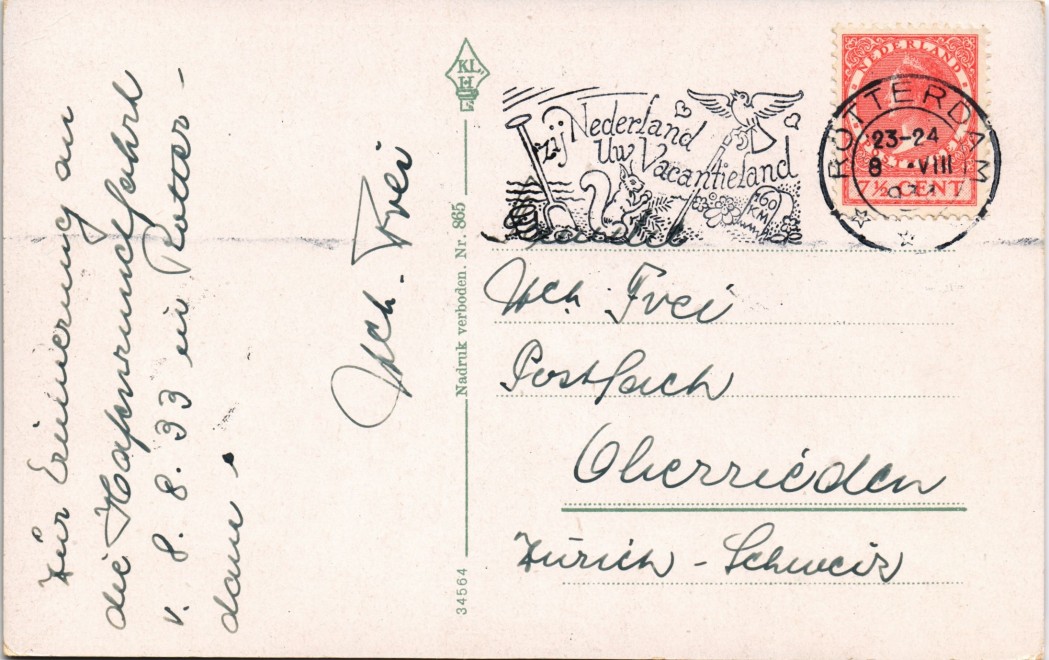 Zur Erinnerung an
die Hafenrundfahrt
v. 8. 8. 33 in Rotter-
dam.
Hch. Frei
KL.
34564
Nadruk verboden. Nr. 865
Zij Nederland
Uw Vacantieland
160
KM
NEDERLAND
7½ CENT
ROTTERDAM
23-24
8 VIII
Hch. Frei
Postfach
Oberrieden
Zürich - Schweiz